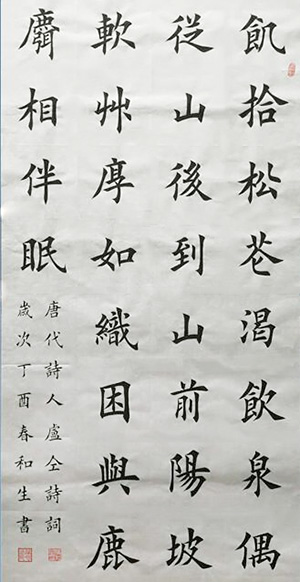 飢拾松花渴飲泉偶
従山後到山前陽坡
軟艸厚如織困與鹿
麛相伴眠
唐代詩人盧仝詩詞
歲次丁酉春和生書